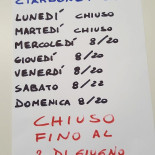 LUNEDÍ CHIUSO
MARTEDÍ CHIUSO
MERCOLEDÍ 8/20
GIOVEDÍ 8/20
VENERDÍ 8/20
SABATO 8/22
DOMENICA 8/20
CHIUSO
FINO AL
2 DI GIUGNO